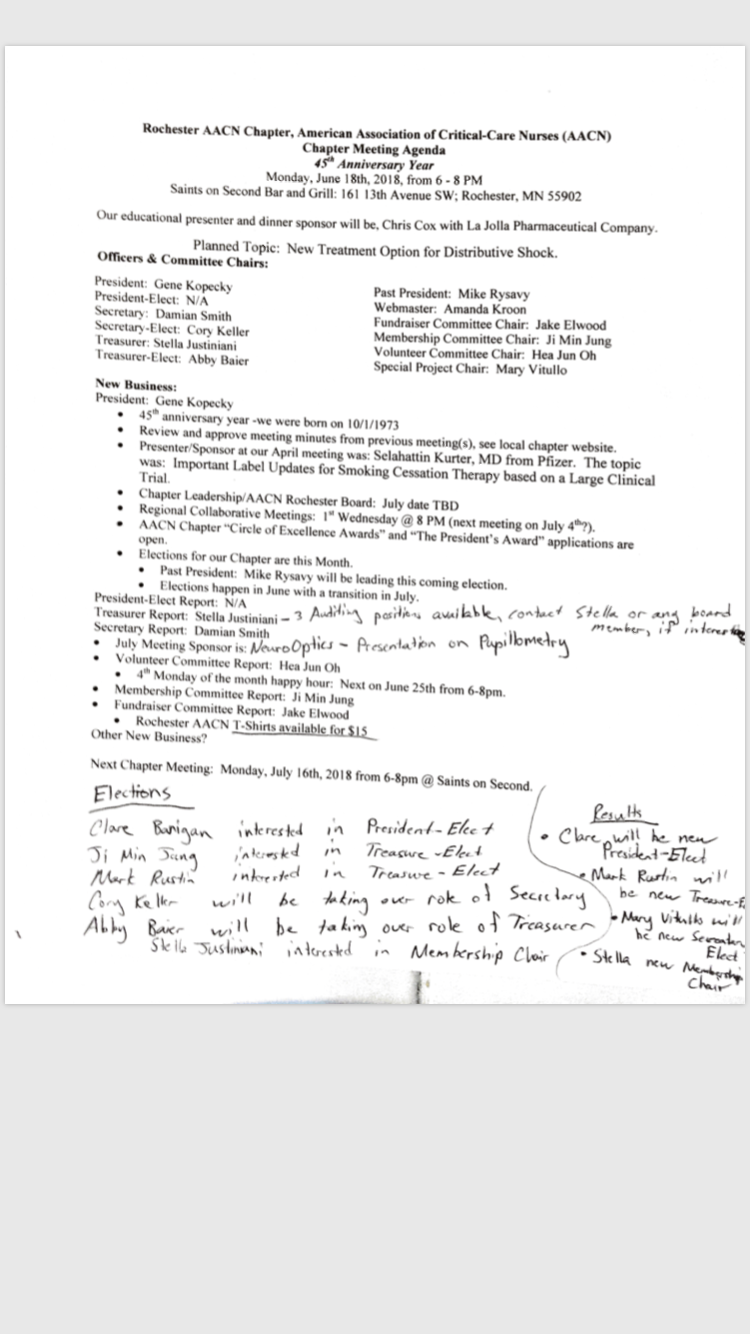 Rochester AACN Chapter, American Association of Critical-Care Nurses (AACN)
Chapter Meeting Agenda
45th Anniversary Year
Monday, June 18th, 2018, from 6 - 8 PM
Saints on Second Bar and Grill: 161 13th Avenue SW; Rochester, MN 55902
Our educational presenter and dinner sponsor will be, Chris Cox with La Jolla Pharmaceutical Company.
Planned Topic: New Treatment Option for Distributive Shock.
Officers & Committee Chairs:
President: Gene Kopecky
President-Elect: N/A
Secretary: Damian Smith
Secretary-Elect: Cory Keller
Treasurer: Stella Justiniani
Treasurer-Elect: Abby Baier
Past President: Mike Rysavy
Webmaster: Amanda Kroon
Fundraiser Committee Chair: Jake Elwood
Membership Committee Chair: Ji Min Jung
Volunteer Committee Chair: Hea Jun Oh
Special Project Chair: Mary Vitullo
New Business:
President: Gene Kopecky
• 45th anniversary year -we were born on 10/1/1973
• Review and approve meeting minutes from previous meeting(s), see local chapter website.
• Presenter/Sponsor at our April meeting was: Selahattin Kurter, MD from Pfizer. The topic
was: Important Label Updates for Smoking Cessation Therapy based on a Large Clinical
Trial.
• Chapter Leadership/AACN Rochester Board: July date TBD
• Regional Collaborative Meetings: 1st Wednesday @ 8 PM (next meeting on July 4th?).
• AACN Chapter "Circle of Excellence Awards" and "The President's Award" applications are
open.
• Elections for our Chapter are this Month.
• Past President: Mike Rysavy will be leading this coming election.
• Elections happen in June with a transition in July.
President-Elect Report: N/A
Treasurer Report: Stella Justiniani – 3 Auditing positions available, contact Stella or any board
member, if
Secretary Report: Damian Smith
• July Meeting Sponsor is: NeurOptics - Presentation on Pupillometry
• Volunteer Committee Report: Hea Jun Oh
• 4th Monday of the month happy hour: Next on June 25th from 6-8pm.
• Membership Committee Report: Ji Min Jung
• Fundraiser Committee Report: Jake Elwood
• Rochester AACN T-Shirts available for $15
Other New Business?
Next Chapter Meeting: Monday, July 16th, 2018 from 6-8pm @ Saints on Second.
Elections
Clare Banigan interested in President-Elect
Ji Min Jung interested in Treasure-Elect
Mark Rustin interested in Treasure-Elect
Cory Keller will be taking over role of Secretary
Abby Baier will be taking over role of Treasurer
Stella Justiniani interested in Membership Chair
Results
• Clare will be new
President-Elect
• Mark Rustin will
be new
• Mary Vitullo will
be new
Elect
• Stella new Membership
Chair